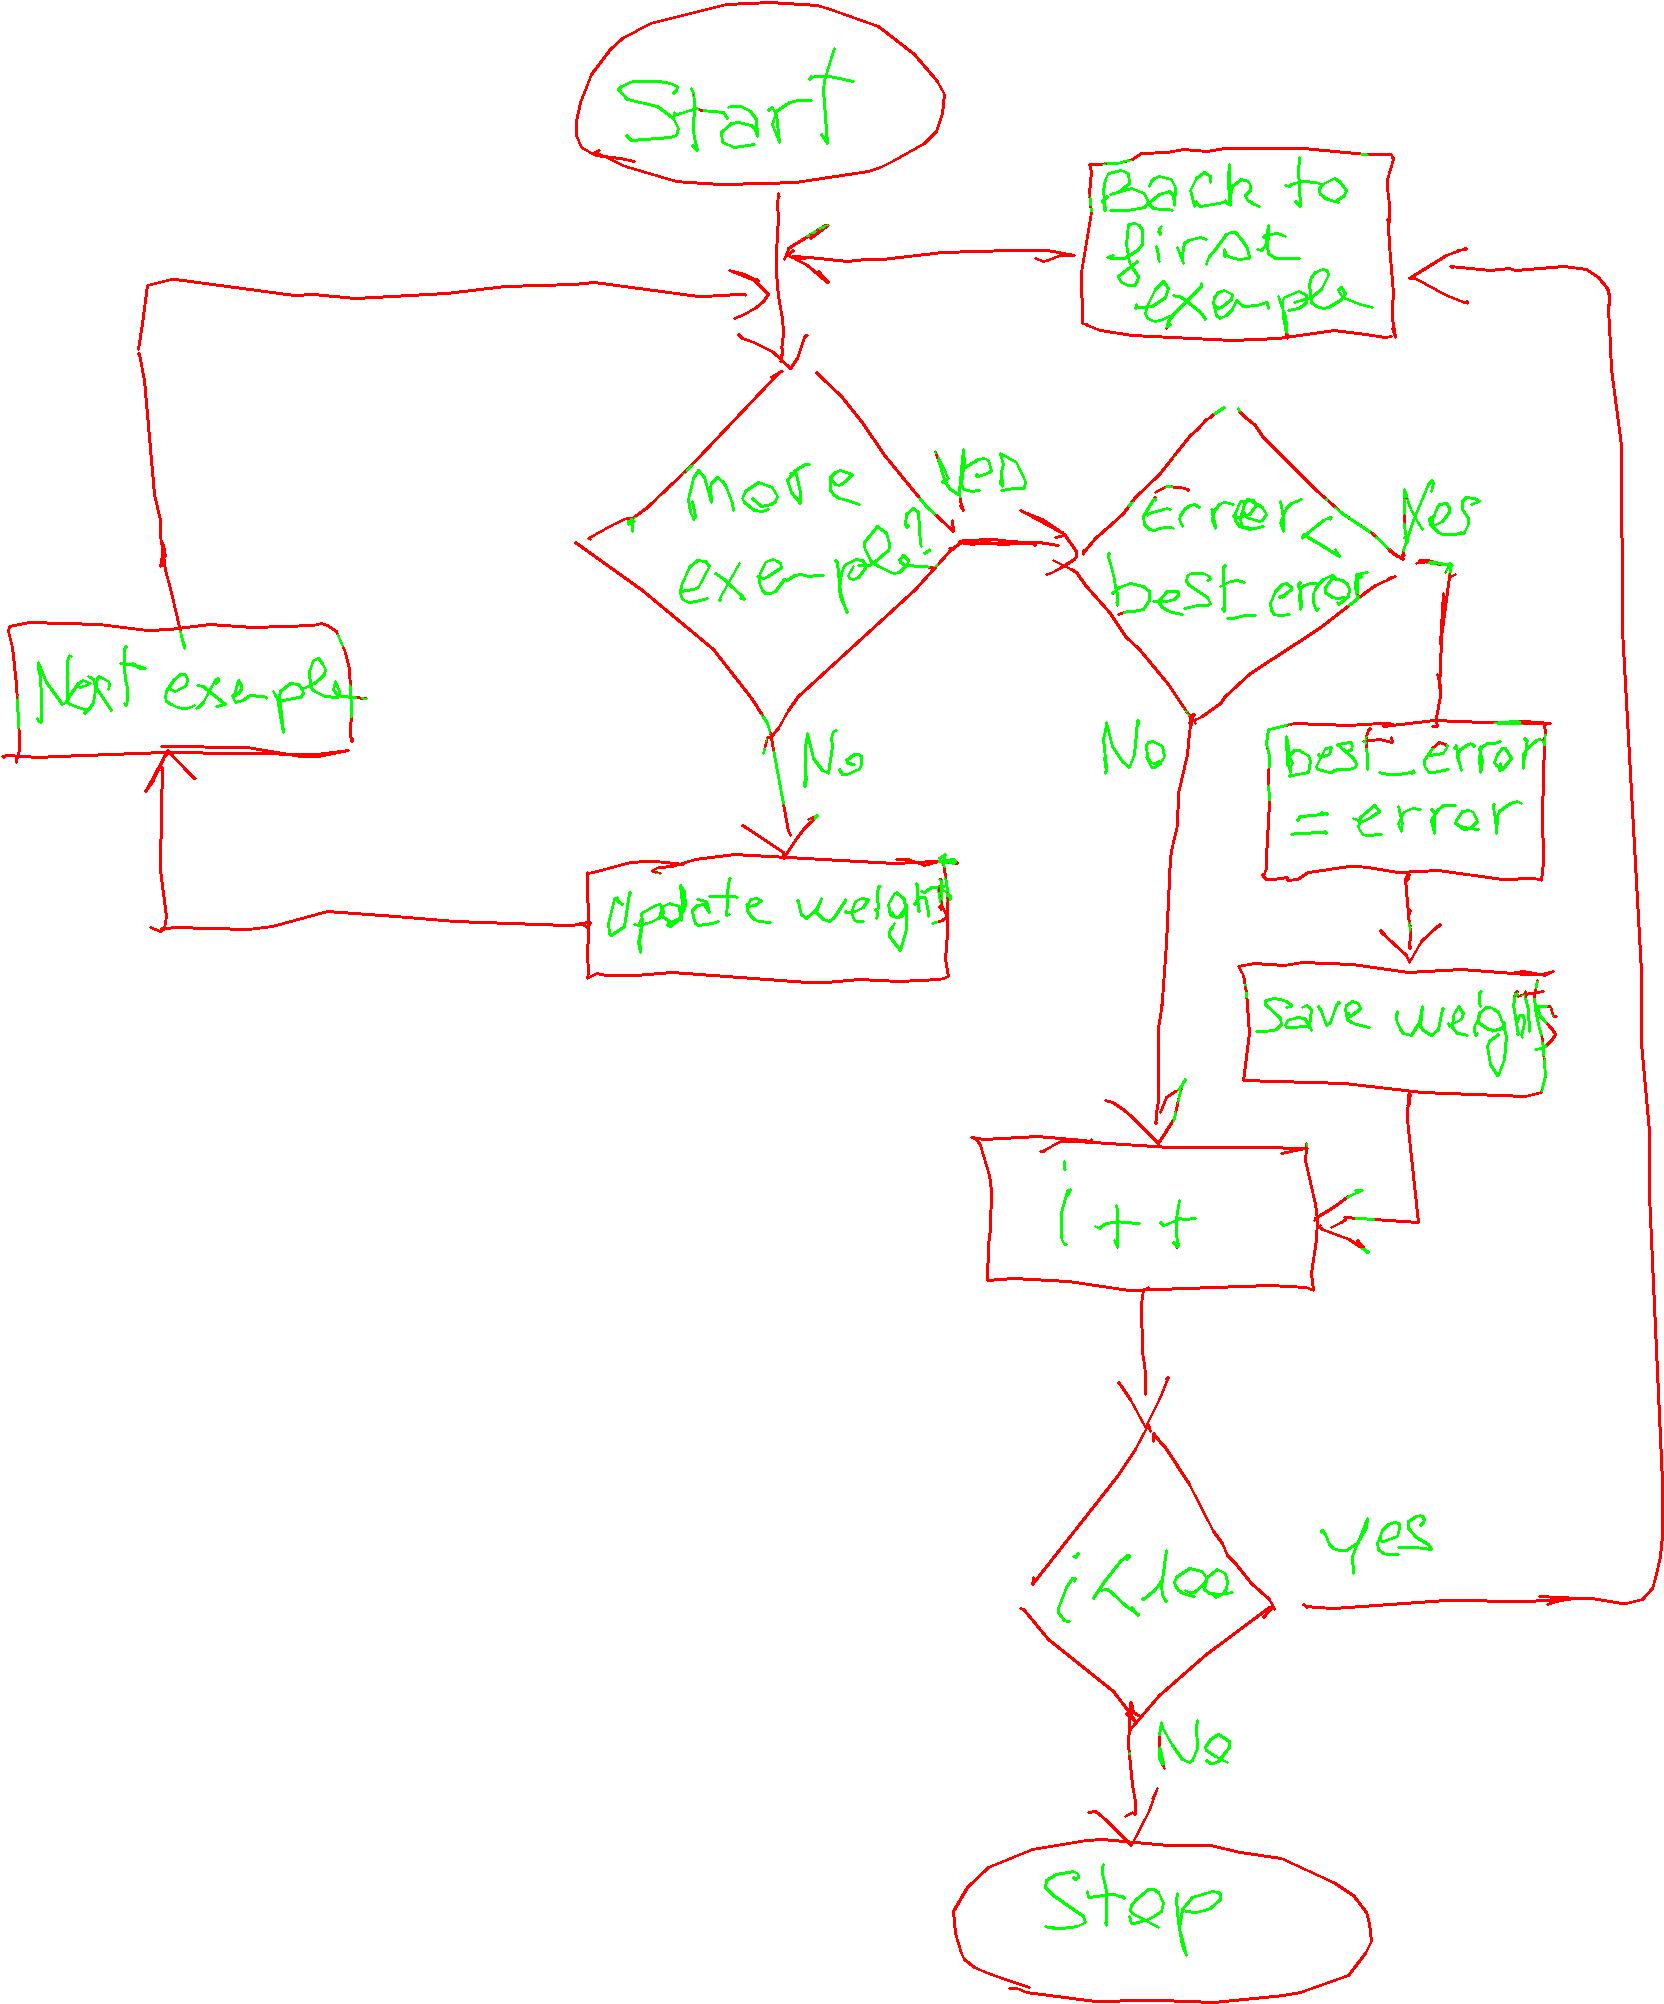 Start
Back to
first
exemple
More
exemple?
Yes
Error <
best_error
Yes
Next exemple
No
No
best_error
= error
Update weights
Save weights
i++
i<100
yes
No
Stop